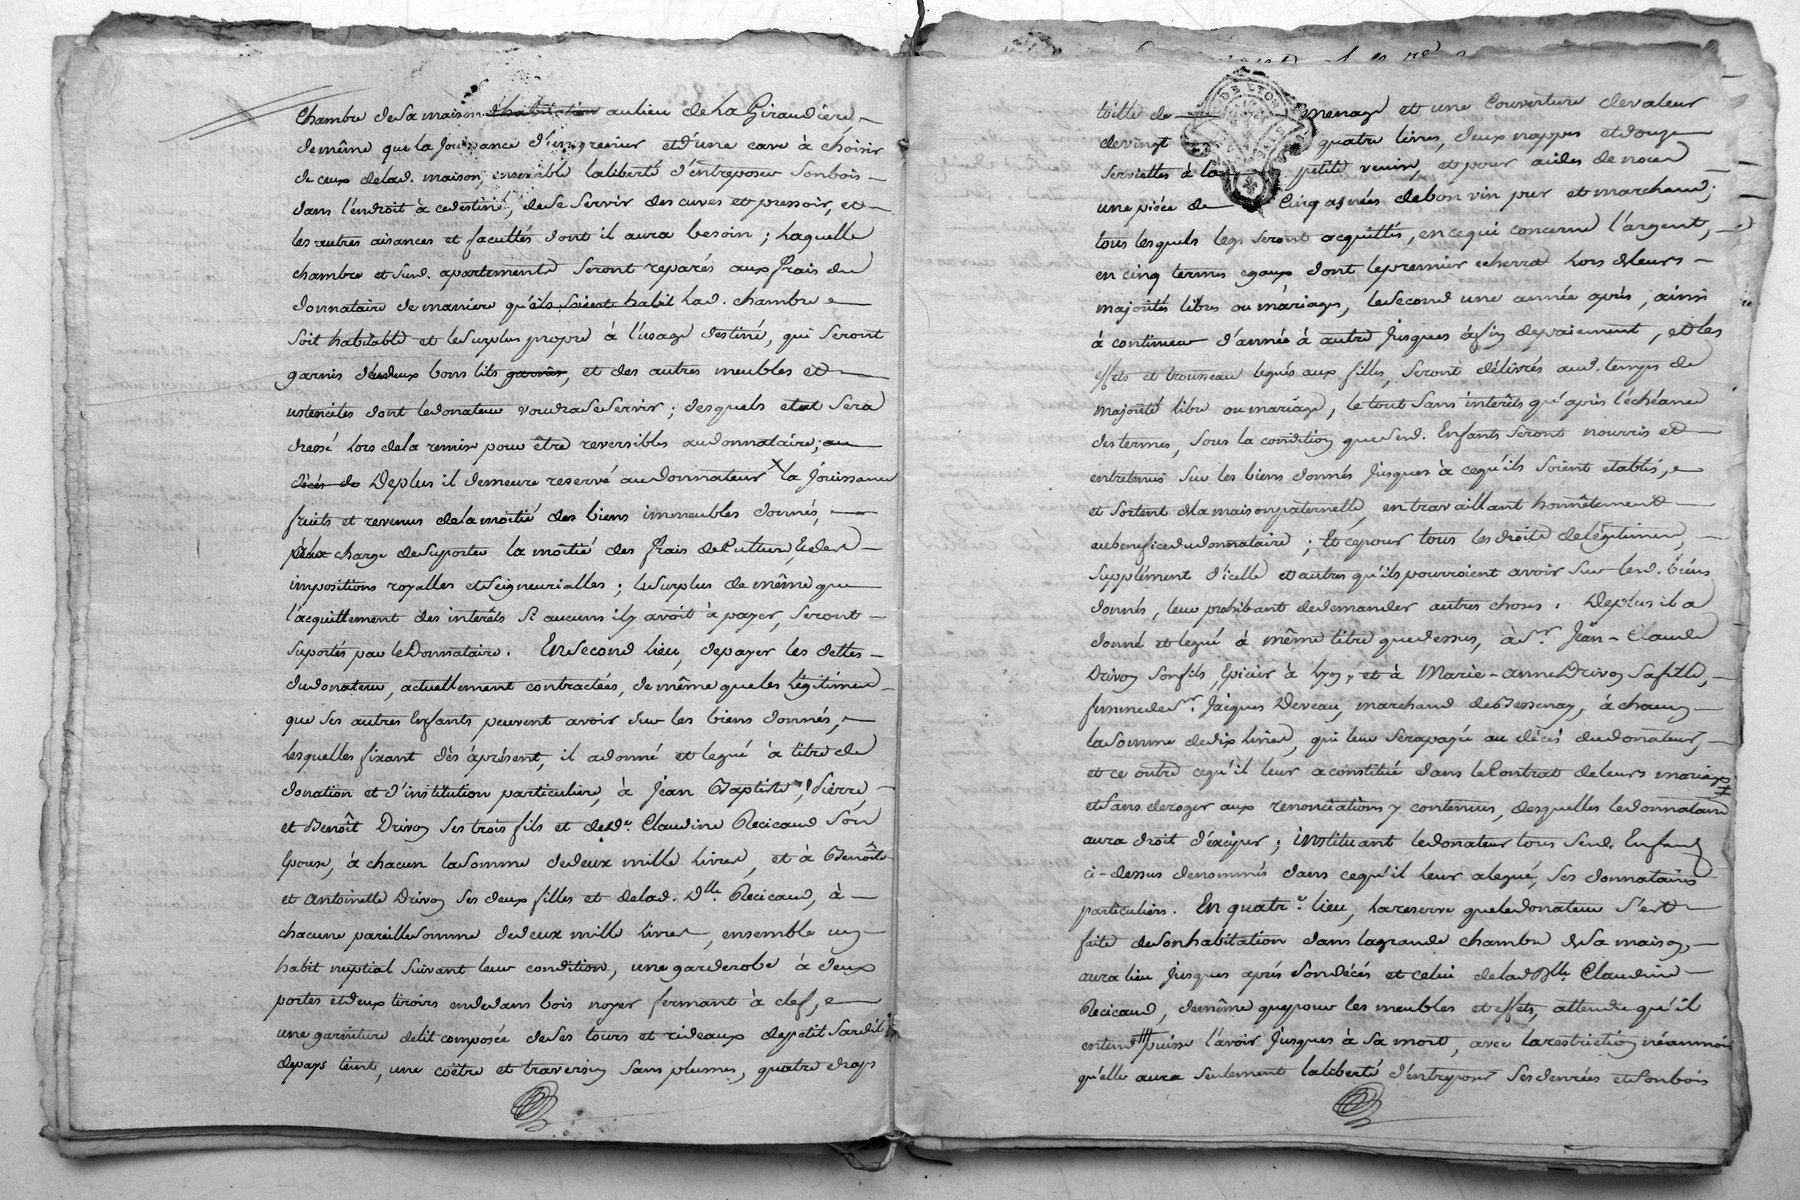 chambre de sa maison d'habitation au lieu de La Giraudière,
de même que la Jouissance d'un grenier et d'une cave à choisir
de ceux de lad. maison, ensemble la liberté d'entreposer son bois
dans l'endroit à ce destiné, de se servir des cuves et pressoir, et
les autres aisances et facultés dont il aura besoin ; Laquelle
chambre et Susd. apartements Seront reparés aux frais du
donnataire de maniere qu'ils soient habit Lad. chambre
soit habitable et le surplus propre à l'usage destiné, qui seront
garnis de deux bons lits garnis, et des autres meubles et
ustenciles dont le donateur voudra se servir ; desquels etat sera
dressé lors de la remise pour être reversibles au donnataire ; au
décés de Deplus il demeure reservé au donnateur la Jouissance
fruits et revenus de la moitié des biens immeubles donnés,
à la charge de suporter la moitié des frais de Culture, Et des
impositions royalles et seigneurialles ; le surplus de même que
l'acquittement des interêts si aucuns il y avoit à payer, seront
suportés par le Donnataire. En second lieu, de payer les dettes
du donateur, actuellement contractées, de même que les Légitimes
que ses autres Enfants peuvent avoir sur les biens donnés,
lesquelles fixant dès àprésent, il a donné et legué à titre de
donation et d'institution particuliere, à Jean Baptiste, Pierre,
et Benoît Drivon ses trois fils et de De. Claudine Recicaud son
Epouse, à chacun la somme de deux mille Livres, et à Benoîte
et Antoinette Drivon ses deux filles et de lad. Dlle. Recicaud, à
chacune pareille somme de deux mille livres, ensemble un
habit nuptial suivant leur condition, une garderobe à deux
portes et deux tiroirs en dedans bois noyer fermant à clef,
une garniture de lit composée de ses tours et rideaux de petit
de pays teint, une coëtre et traversin sans plumes, quatre draps
toille de menage et une Couverture de valeur
de vingt quatre livres, deux nappes et douze
serviettes à la petite venise, et pour aides de noces
une pièce de Cinq asnées de bon vin pur et marchand ;
tous lesquels legs seront acquittés, en ce qui concerne l'argent,
en cinq termes egaux dont le premier echerra lors de leurs
majorités libres ou mariages, le second une année après, ainsi
à continuer d'année à autre Jusques à fin de paiement, et les
effets et trousseau legués aux filles, seront délivrés aud. temps de
majorité libre ou mariage, le tout sans interêts qu'après l'échéance
des termes, sous la condition que lesd. Enfants seront nourris et
entretenus sur les biens donnés Jusques à ce qu'ils soient etablis,
et sortent de la maison paternelle, en travaillant honnêtement
au benefice du donnataire ; Et ce pour tous les droits de légitimes,
supplément d'icelle et autres qu'ils pourroient avoir sur lesd. biens
donnés, leur prohibant de demander autres choses. Deplus il a
donné et legué à même titre que dessus, à Sr. Jean-Claude
Drivon son fils, Epicier à Lyon, et à Marie-anne Drivon sa fille,
femme de Sr. Jacques Deveau, marchand de Bessenay, à chacun
la somme de dix Livres, qui leur sera payée au décès du donateur,
et ce outre ce qu'il leur a constitué dans le Contrat de leurs mariages
et sans deroger aux renonciations y contenues, desquelles le donnataire
aura droit d'éxciper ; instituant le donateur tous sesd. Enfants
ci-dessus denommés dans ce qu'il leur a legué, ses donnataires
particuliers. En quatre. lieu, La reserve que le donateur s'est
faite de son habitation dans la grande chambre de sa maison,
aura lieu Jusques après son décés et celui de lad Dlle Claudine
Recicaud, de même que pour les meubles et effets, attendu qu'il
entend puisse l'avoir Jusques à sa mort, avec la restriction néanmoins
qu'elle aura seulement la liberté d'entreposer ses denrées et son bois